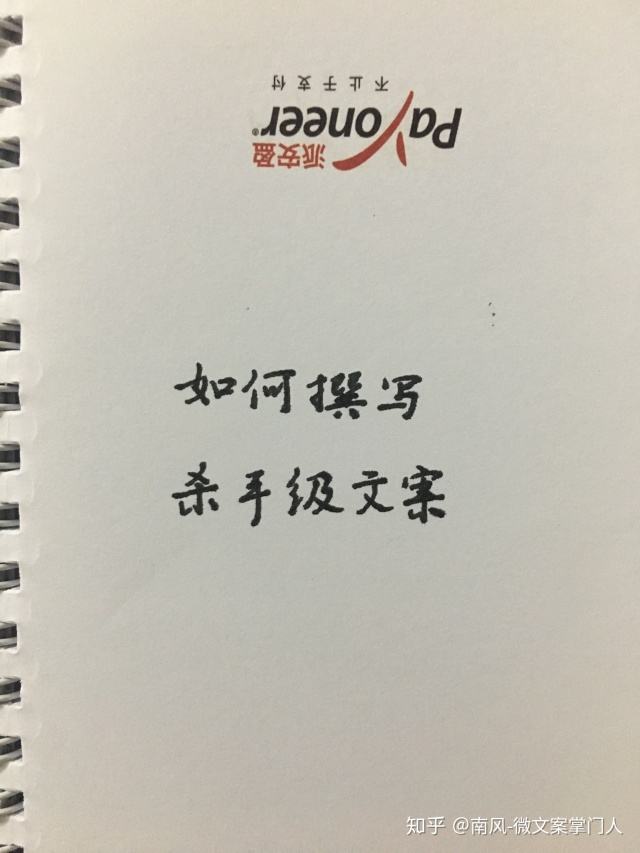 不止于支付
Payoneer®
派安盈
如何撰写
杀手级文案
知乎 @南风-微文案掌门人